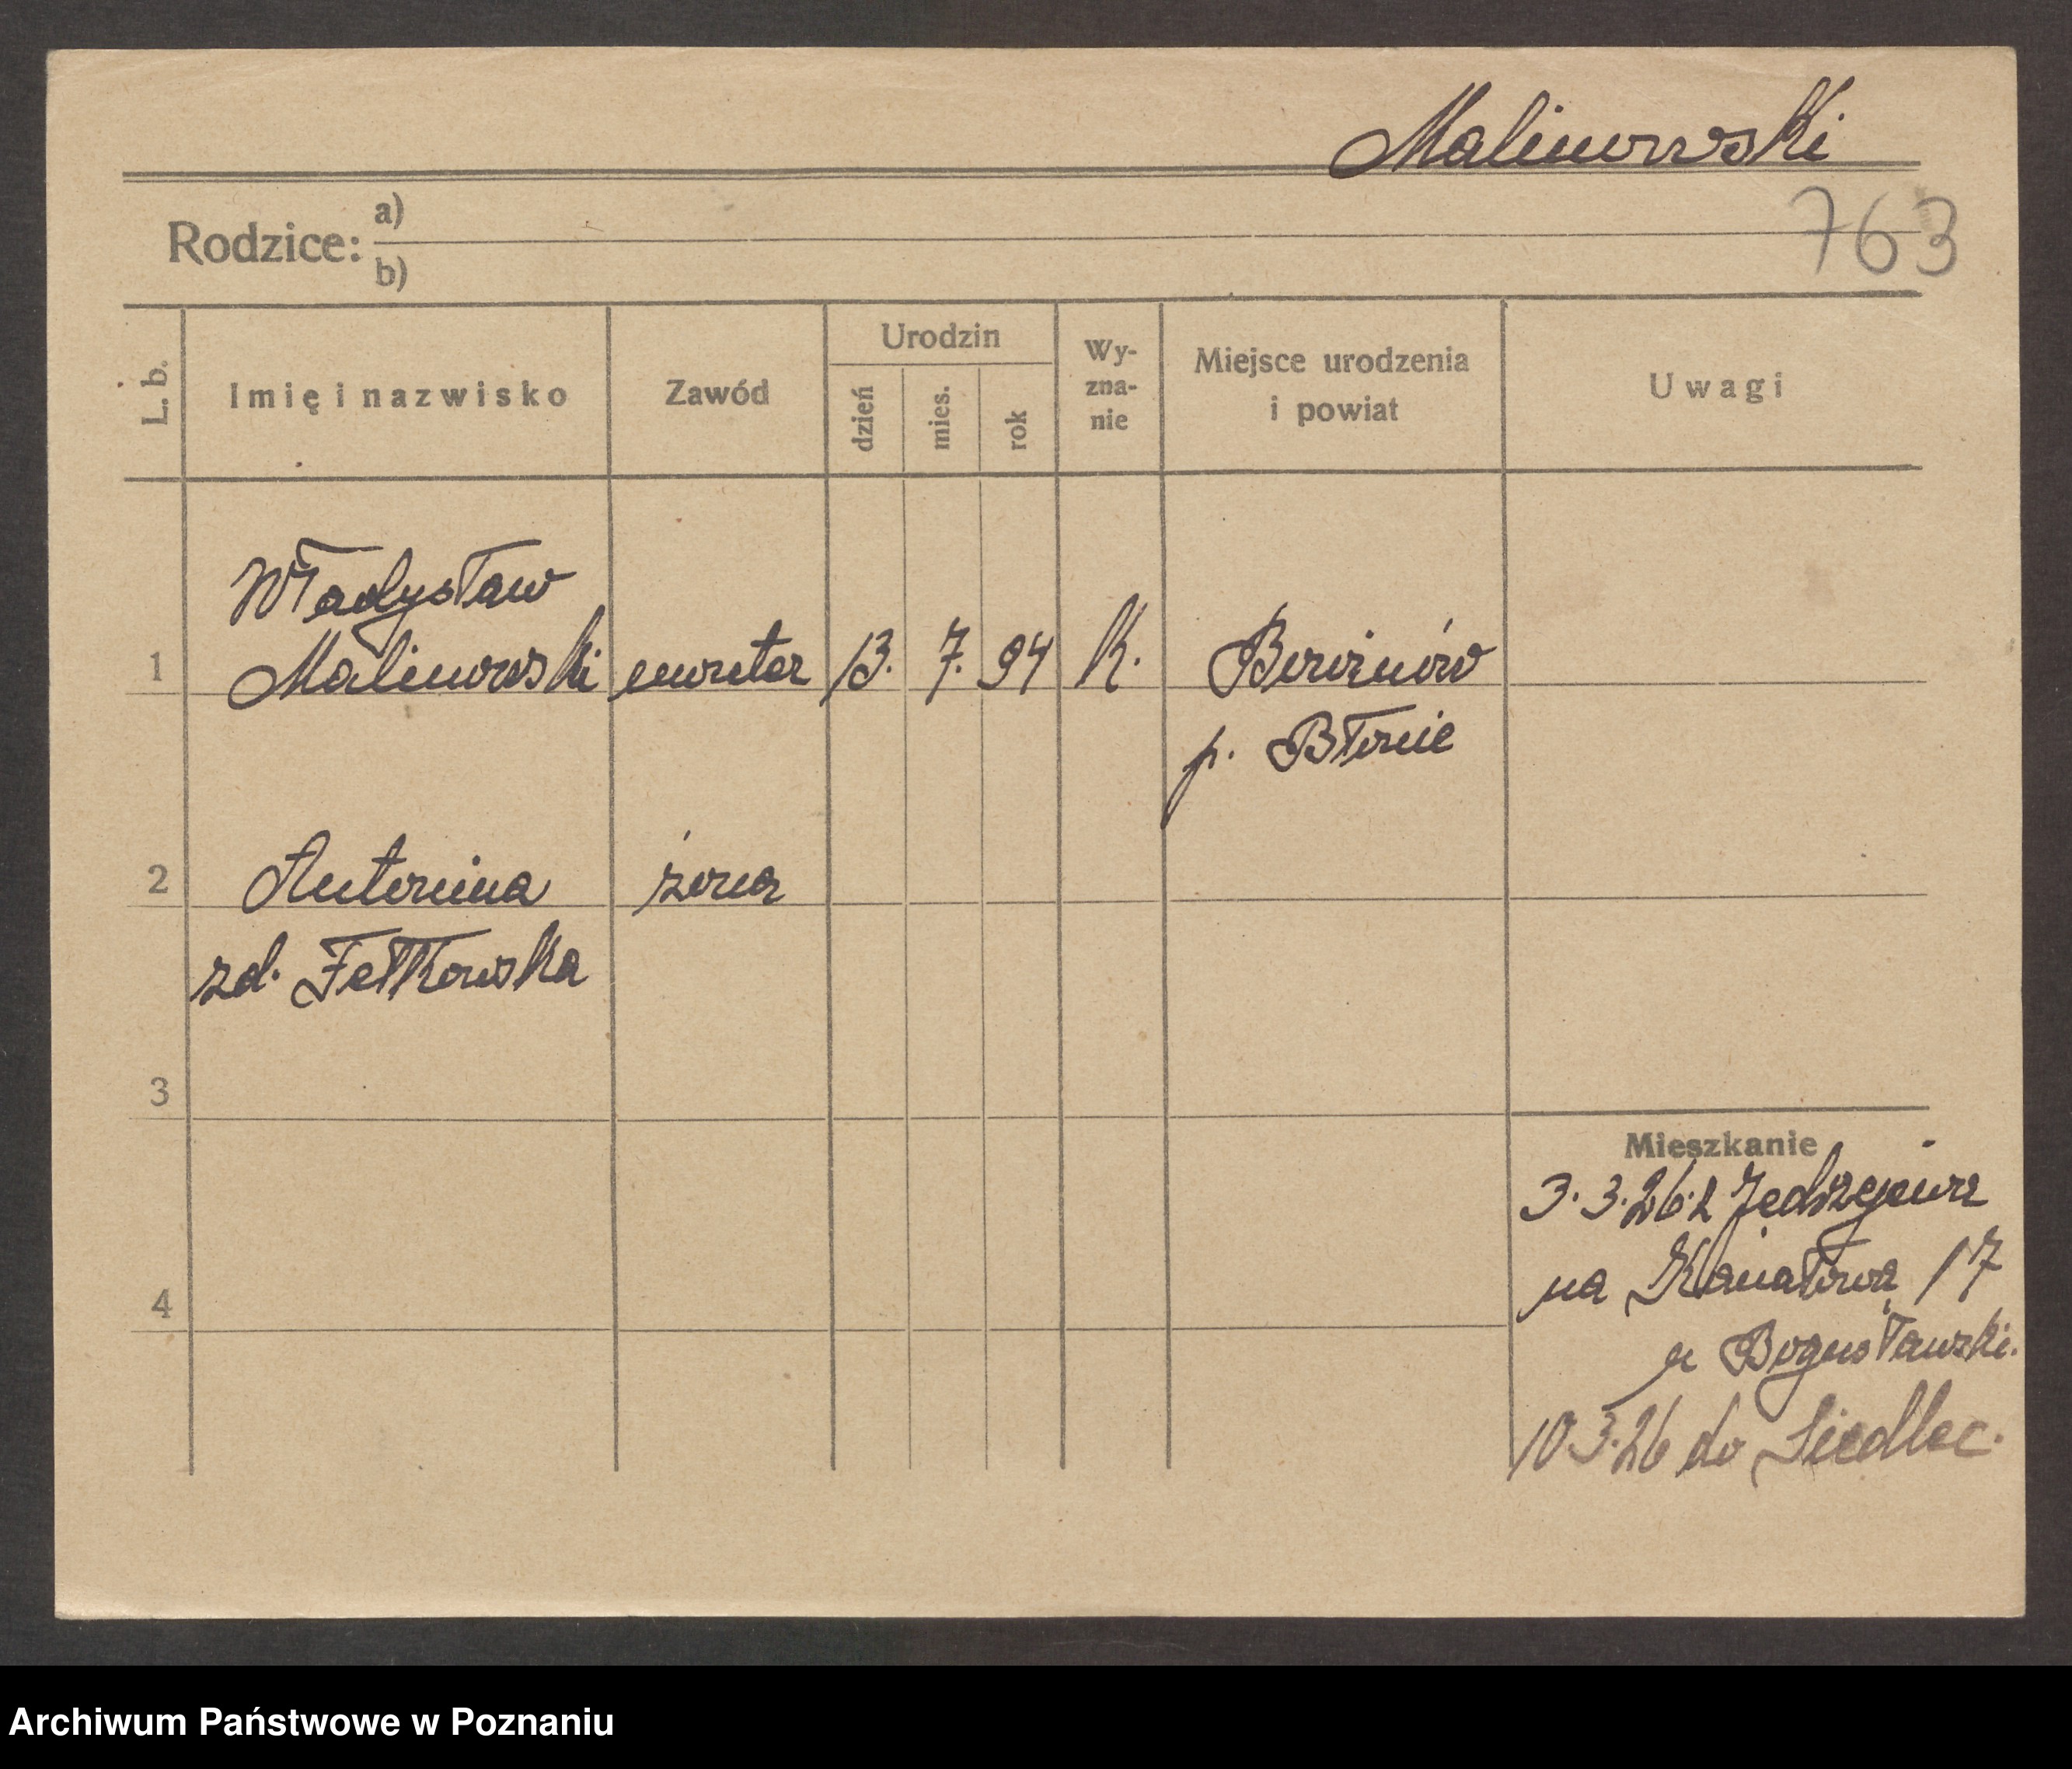 Malinowski
763
Rodzice: a)
b)
L. b.
Imię i nazwisko
Zawód
Urodzin
dzień
mies.
rok
Wy-
zna-
nie
Miejsce urodzenia
i powiat
Uwagi
Władysław
1 Malinowski monter 13. 7. 94 K. Brwinów
p. Błonie
2 Antonina żona
zd. Fełkowska
3
Mieszkanie
3.3.26 z Jędrzejowa
na Kanałową 17
4
u Bogusławski.
10.3.26 do Siedlec.
Archiwum Państwowe w Poznaniu